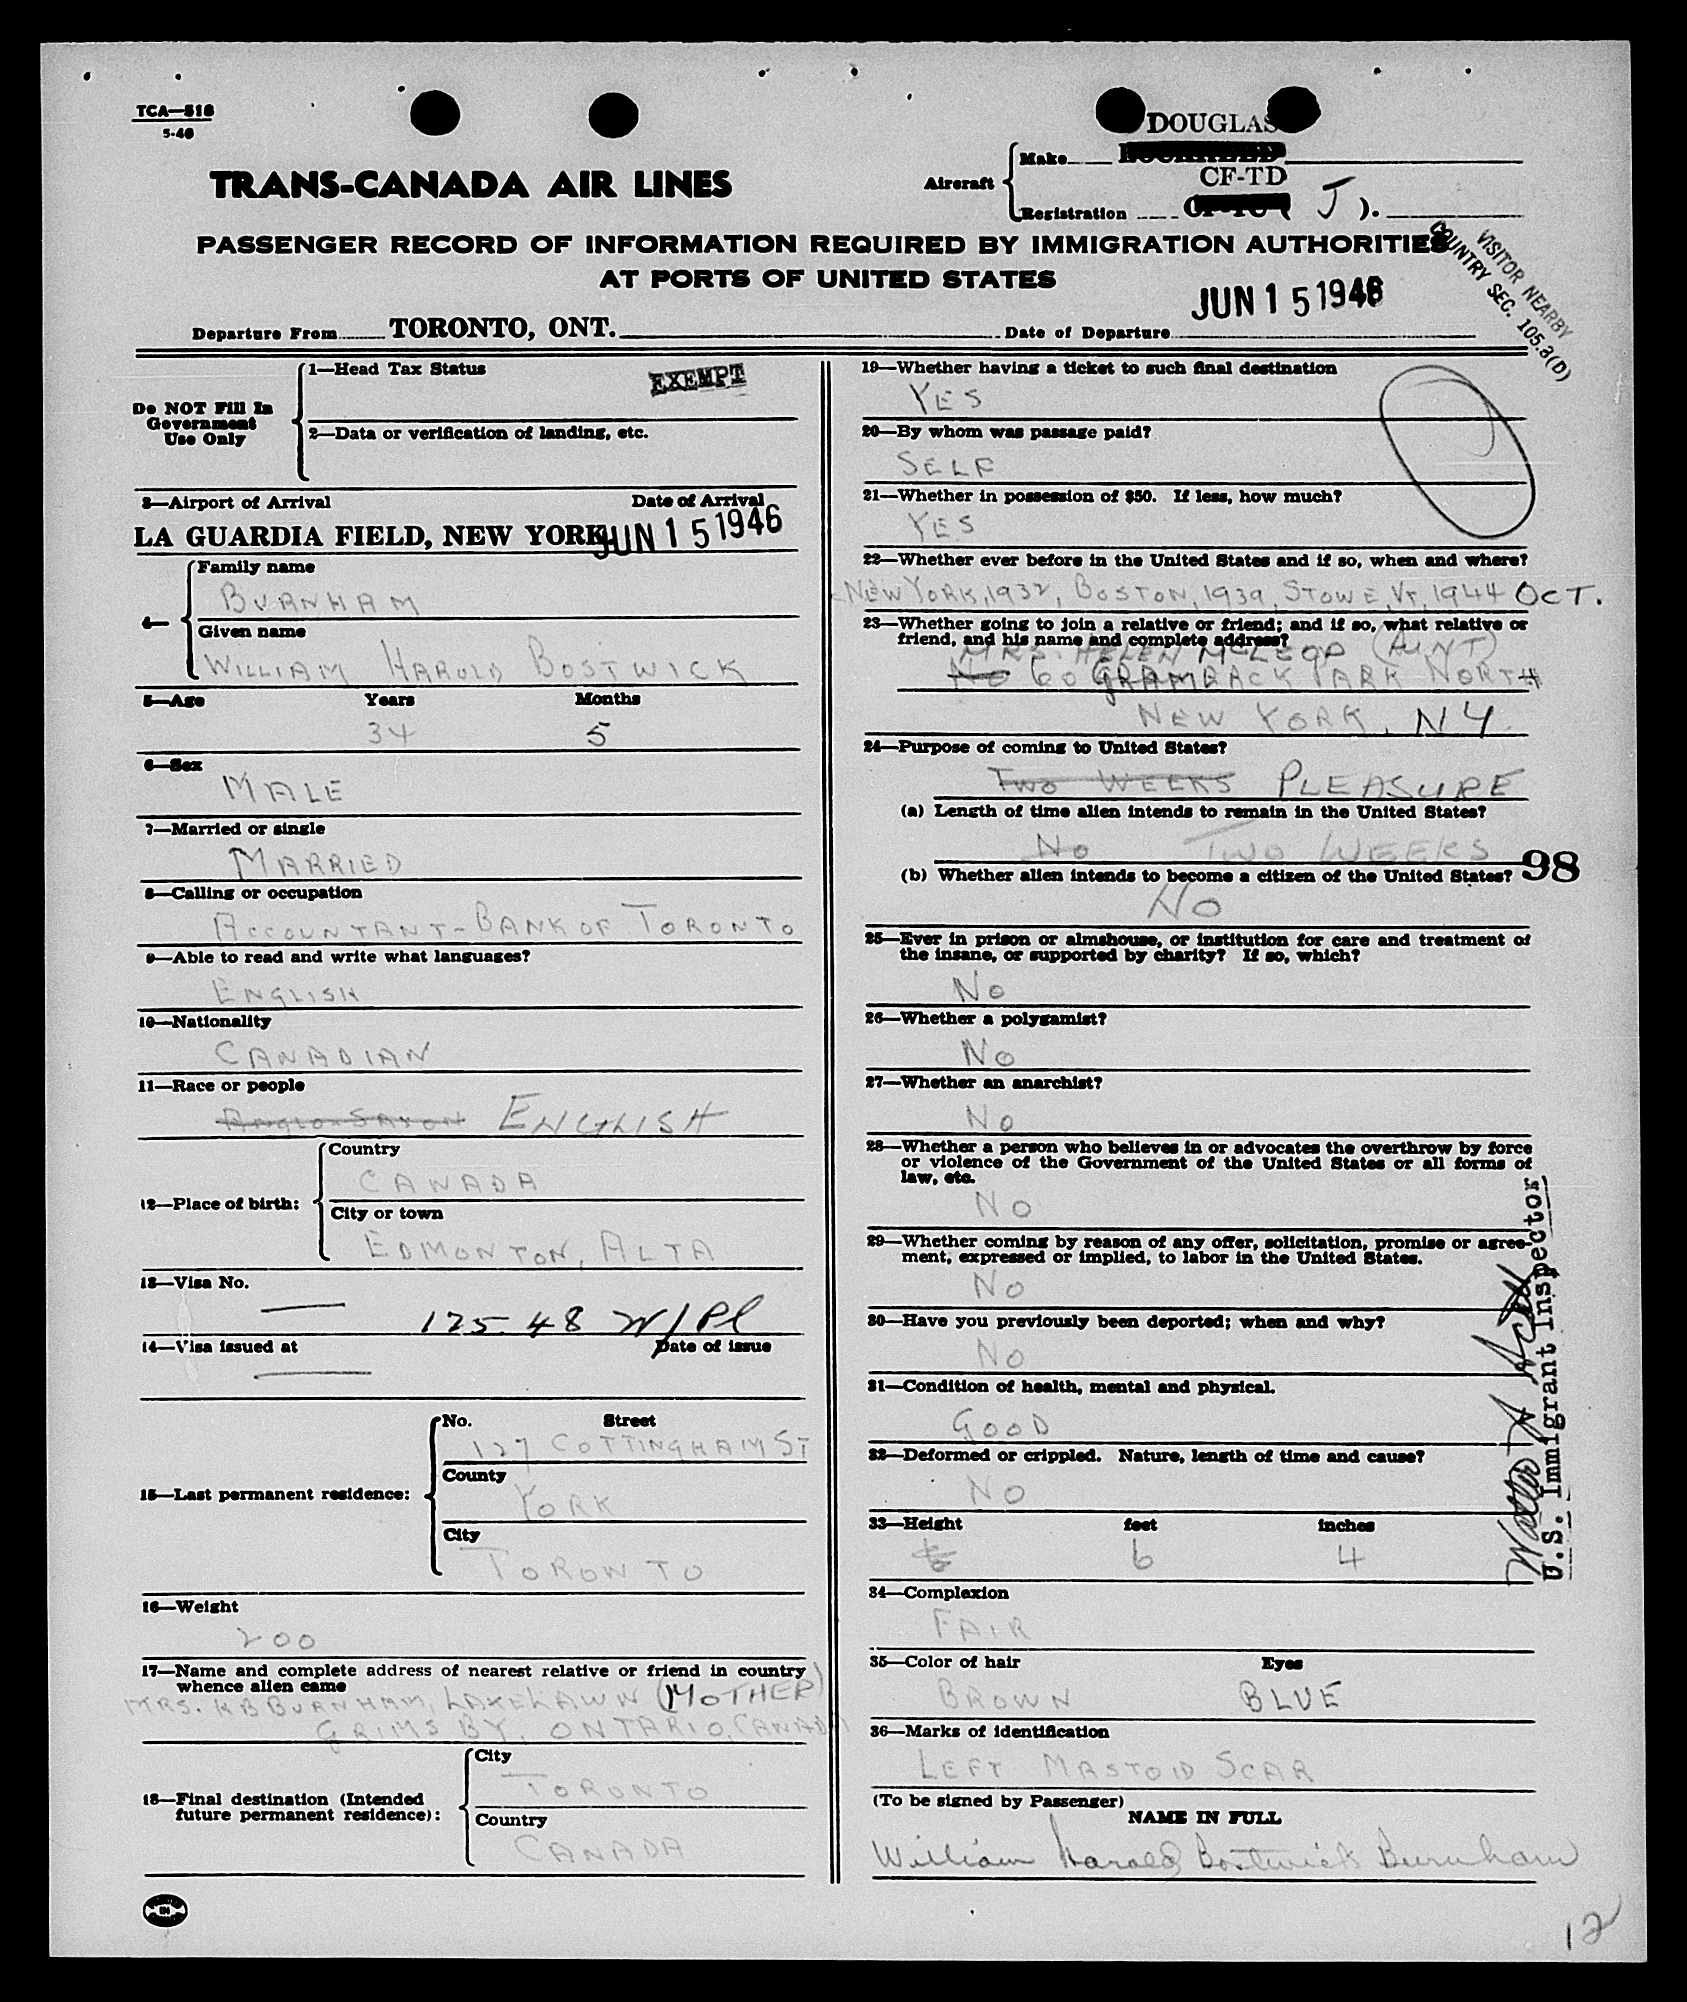 TCA—518
5-46
DOUGLAS
Aircraft
Make
CF-TD
Registration ( J ).
TRANS-CANADA AIR LINES
PASSENGER RECORD OF INFORMATION REQUIRED BY IMMIGRATION AUTHORITIES
AT PORTS OF UNITED STATES
VISITOR NEARBY
COUNTRY SEC. 105.3(D)
Departure From TORONTO, ONT. Date of Departure JUN 15 1946
Do NOT Fill In
Government
Use Only
1—Head Tax Status
EXEMPT
2—Data or verification of landing, etc.
3—Airport of Arrival Date of Arrival
LA GUARDIA FIELD, NEW YORK JUN 15 1946
4—
Family name
BURNHAM
Given name
WILLIAM HAROLD BOSTWICK
5—Age Years Months
34 5
6—Sex
MALE
7—Married or single
MARRIED
8—Calling or occupation
ACCOUNTANT - BANK OF TORONTO
9—Able to read and write what languages?
ENGLISH
10—Nationality
CANADIAN
11—Race or people
ANGLO-SAXON ENGLISH
12—Place of birth:
Country
CANADA
City or town
EDMONTON, ALTA
13—Visa No.
— 125.48 W/Pl
14—Visa issued at Date of issue
—
15—Last permanent residence:
No. Street
127 COTTINGHAM ST
County
YORK
City
TORONTO
16—Weight
200
17—Name and complete address of nearest relative or friend in country
whence alien came
MRS. H B BURNHAM, LAKELAWN (MOTHER)
GRIMSBY, ONTARIO, CANADA
18—Final destination (Intended
future permanent residence):
City
TORONTO
Country
CANADA
19—Whether having a ticket to such final destination
YES
20—By whom was passage paid?
SELF
21—Whether in possession of $50. If less, how much?
YES
22—Whether ever before in the United States and if so, when and where?
NEW YORK, 1932, BOSTON, 1939, STOWE, VT, 1944 OCT.
23—Whether going to join a relative or friend; and if so, what relative or
friend, and his name and complete address?
MRS. HELEN MCLEOD (AUNT)
No 60 GRAMBACK PARK NORTH
NEW YORK, NY.
24—Purpose of coming to United States?
TWO WEEKS PLEASURE
(a) Length of time alien intends to remain in the United States?
No TWO WEEKS
98
(b) Whether alien intends to become a citizen of the United States?
NO
25—Ever in prison or almshouse, or institution for care and treatment of
the insane, or supported by charity? If so, which?
NO
26—Whether a polygamist?
NO
27—Whether an anarchist?
NO
28—Whether a person who believes in or advocates the overthrow by force
or violence of the Government of the United States or all forms of
law, etc.
NO
29—Whether coming by reason of any offer, solicitation, promise or agree-
ment, expressed or implied, to labor in the United States.
NO
30—Have you previously been deported; when and why?
NO
31—Condition of health, mental and physical.
GOOD
32—Deformed or crippled. Nature, length of time and cause?
NO
33—Height feet inches
6 6 4
34—Complexion
FAIR
35—Color of hair Eyes
BROWN BLUE
36—Marks of identification
LEFT MASTOID SCAR
(To be signed by Passenger)
NAME IN FULL
William Harold Bostwick Burnham
U.S. Immigrant Inspector
12